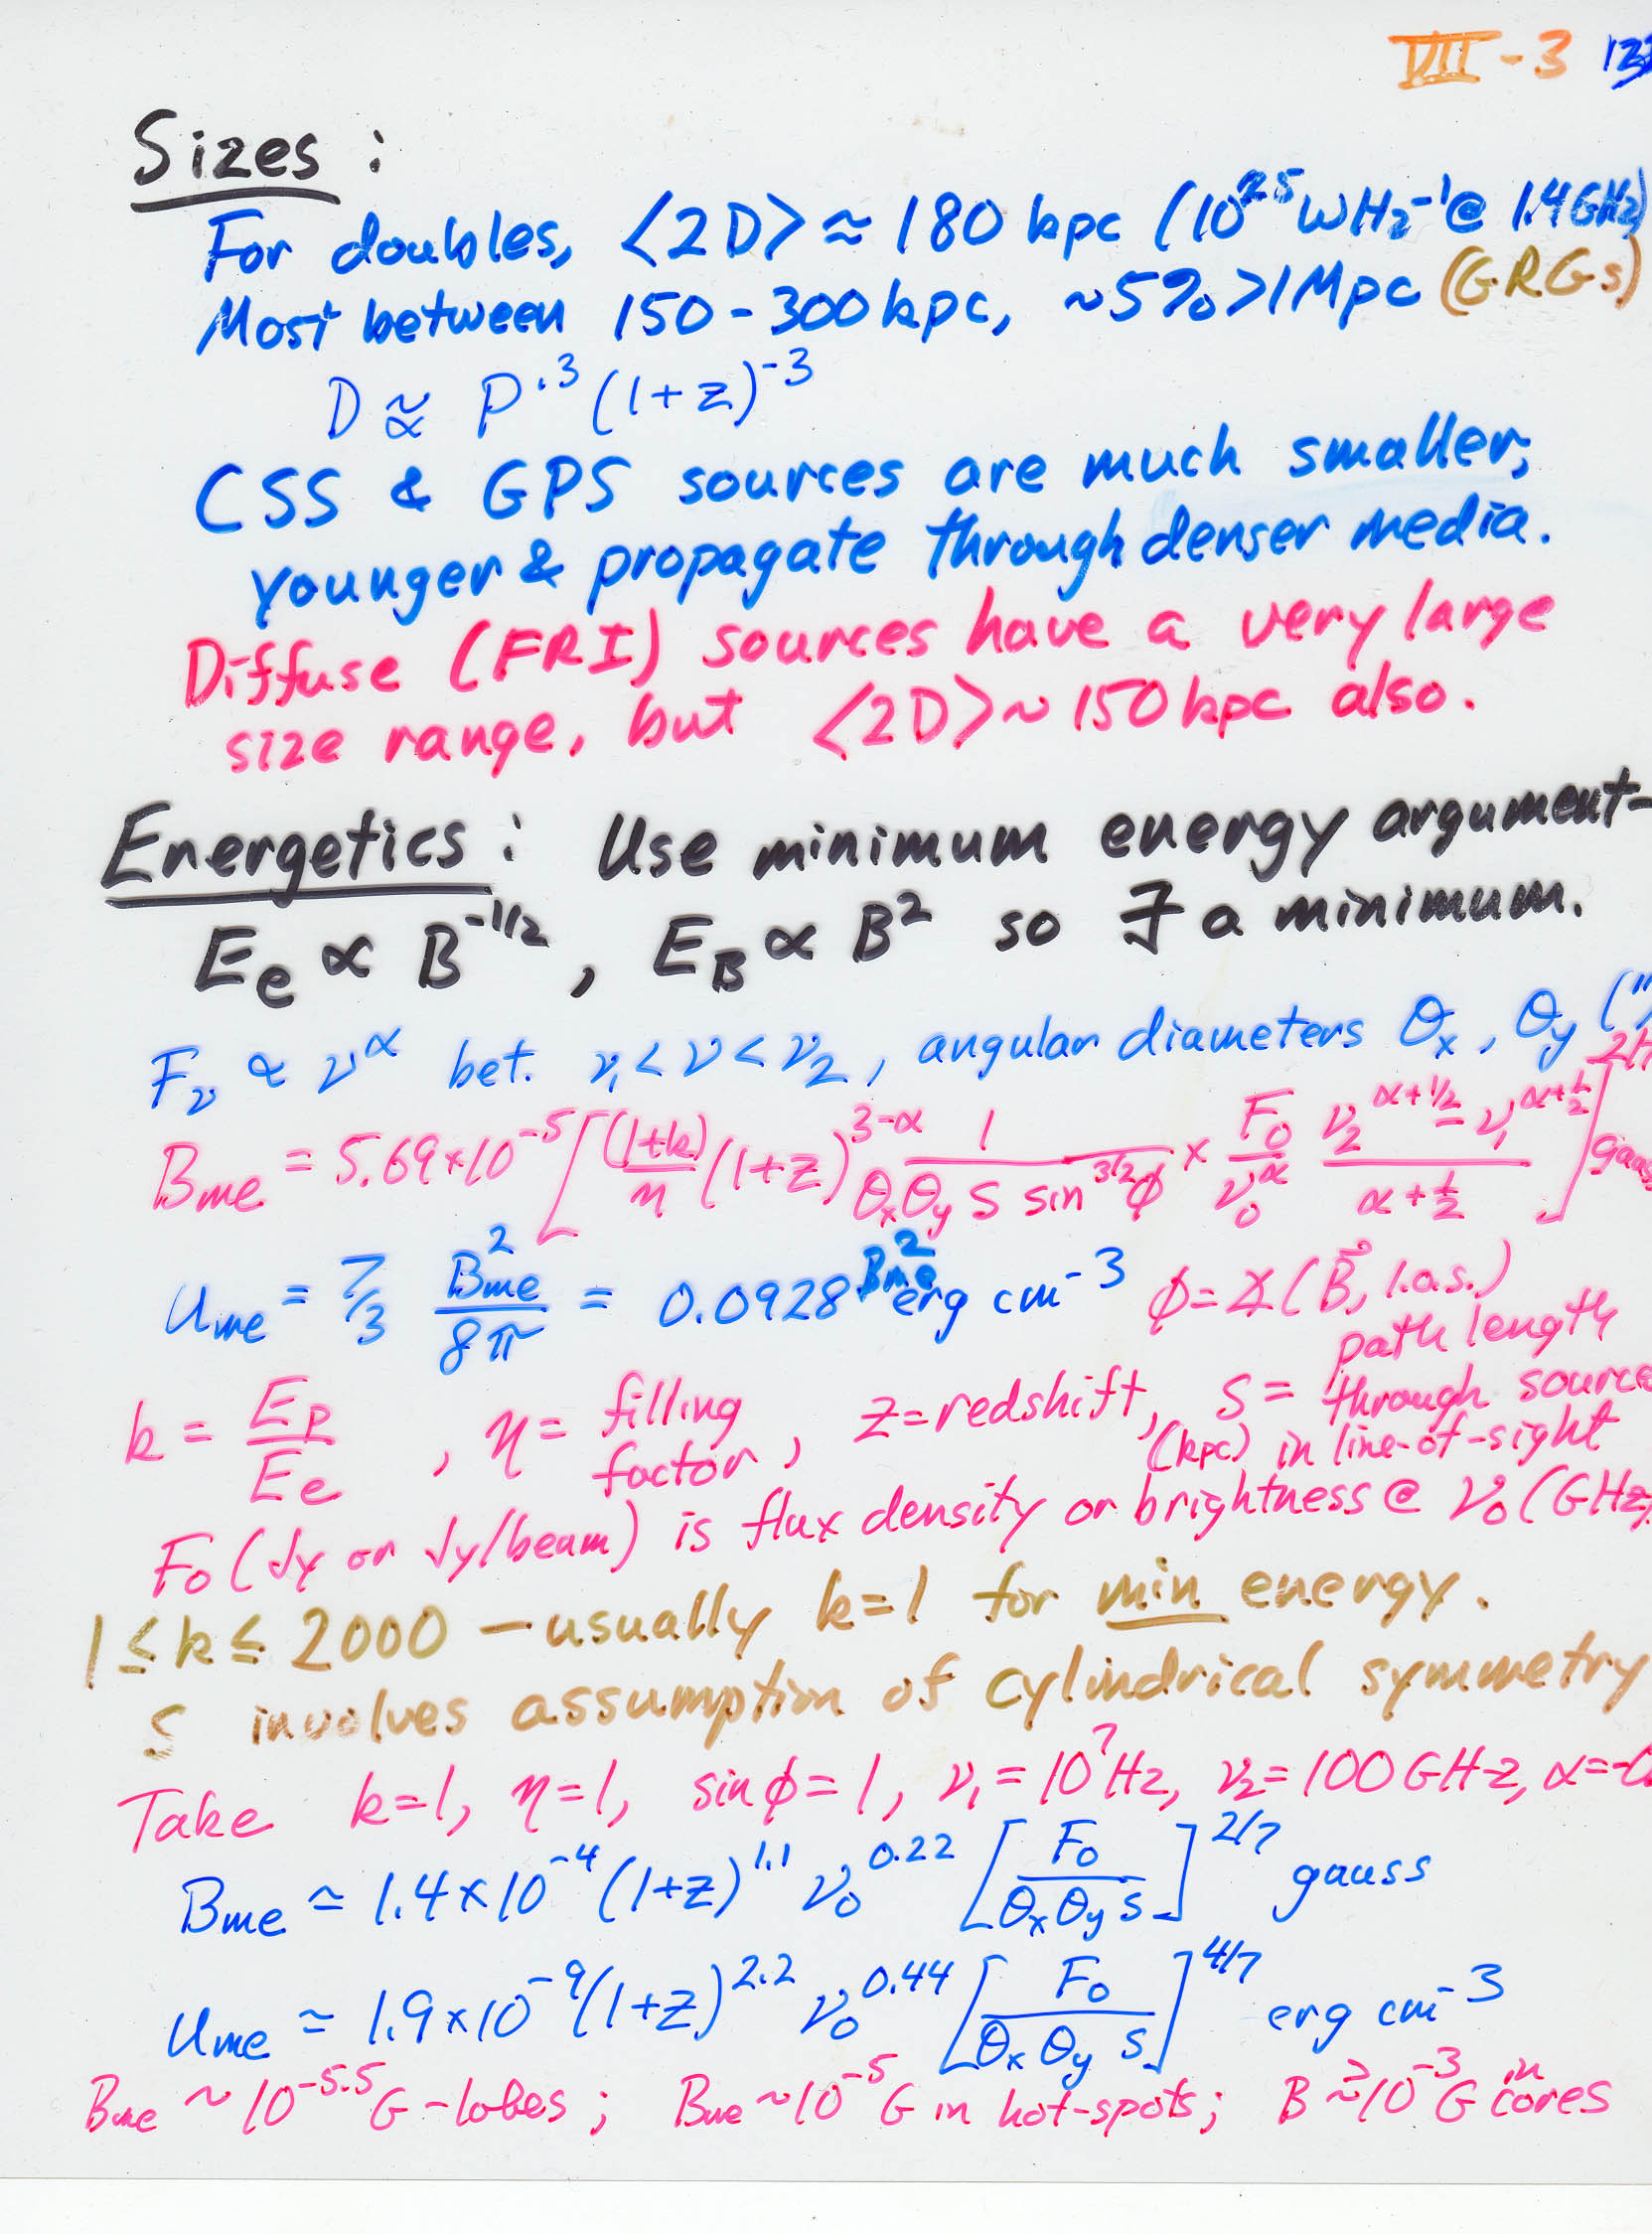 VII - 3 13
Sizes :
For doubles, ⟨2D⟩ ≈ 180 kpc (10^25 WHz^-1 @ 1.4GHz)
Most between 150-300 kpc, ~5% >1Mpc (GRGs)
D ∝~ P^.3 (1+z)^-3
CSS & GPS sources are much smaller,
younger & propagate through denser media.
Diffuse (FRI) sources have a very large
size range, but ⟨2D⟩ ~ 150 kpc also.
Energetics : Use minimum energy argument-
E_e ∝ B^-1/2 , E_B ∝ B^2 so ∃ a minimum.
F_ν ∝ ν^α bet. ν_1 < ν < ν_2 , angular diameters θ_x , θ_y (")
B_me = 5.69×10^-5 [ (1+k)/η (1+z)^3-α 1/(θ_x θ_y s sin^3/2 φ) × F_0/ν_0^α (ν_2^α+1/2 - ν_1^α+1/2)/(α+1/2) ] gauss
u_me = 7/3 B_me^2/8π = 0.0928 B_me^2 erg cm^-3 φ = ∡(B⃗, l.o.s.)
k = E_p/E_e , η = filling factor , z = redshift, s = path length through source (kpc) in line-of-sight
F_0 (Jy or Jy/beam) is flux density or brightness @ ν_0 (GHz)
1 ≤ k ≤ 2000 — usually k=1 for min energy.
S involves assumption of cylindrical symmetry
Take k=1, η=1, sin φ = 1, ν_1 = 10^7 Hz, ν_2 = 100 GHz, α=-
B_me ≃ 1.4×10^-4 (1+z)^1.1 ν_0^0.22 [ F_0/(θ_x θ_y s) ]^2/7 gauss
u_me ≃ 1.9×10^-9 (1+z)^2.2 ν_0^0.44 [ F_0/(θ_x θ_y s) ]^4/7 erg cm^-3
B_me ~ 10^-5.5 G - lobes ; B_me ~ 10^-5 G in hot-spots ; B ≳ 10^-3 G in cores